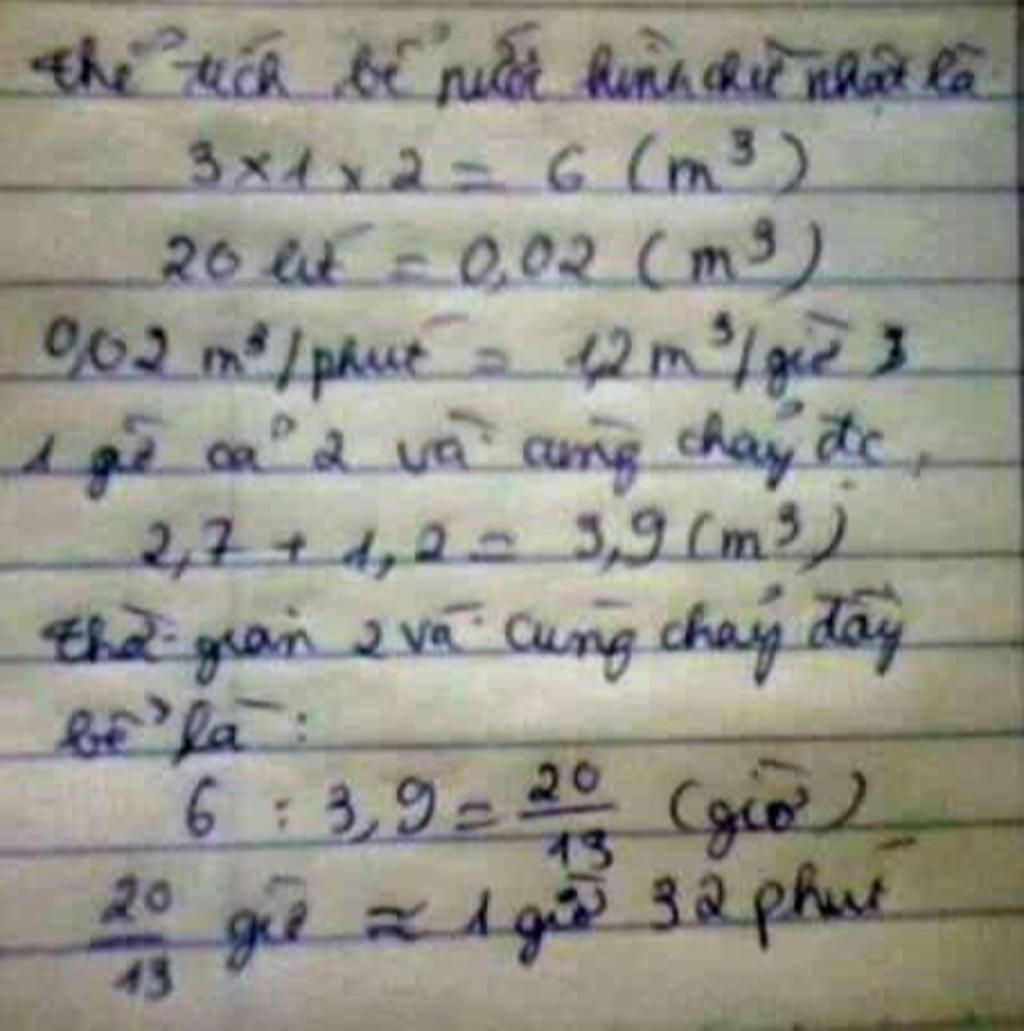 thể tích bể nước hình chữ nhật là
3 x 1 x 2 = 6 (m³)
20 lít = 0,02 (m³)
0,02 m³/phút = 1,2 m³/giờ 3
1 giờ cả 2 vòi cùng chảy đc,
2,7 + 1,2 = 3,9 (m³)
thời gian 2 vòi cùng chảy đầy
bể là :
6 : 3,9 = 20/13 (giờ)
20/13 giờ ≈ 1 giờ 32 phút